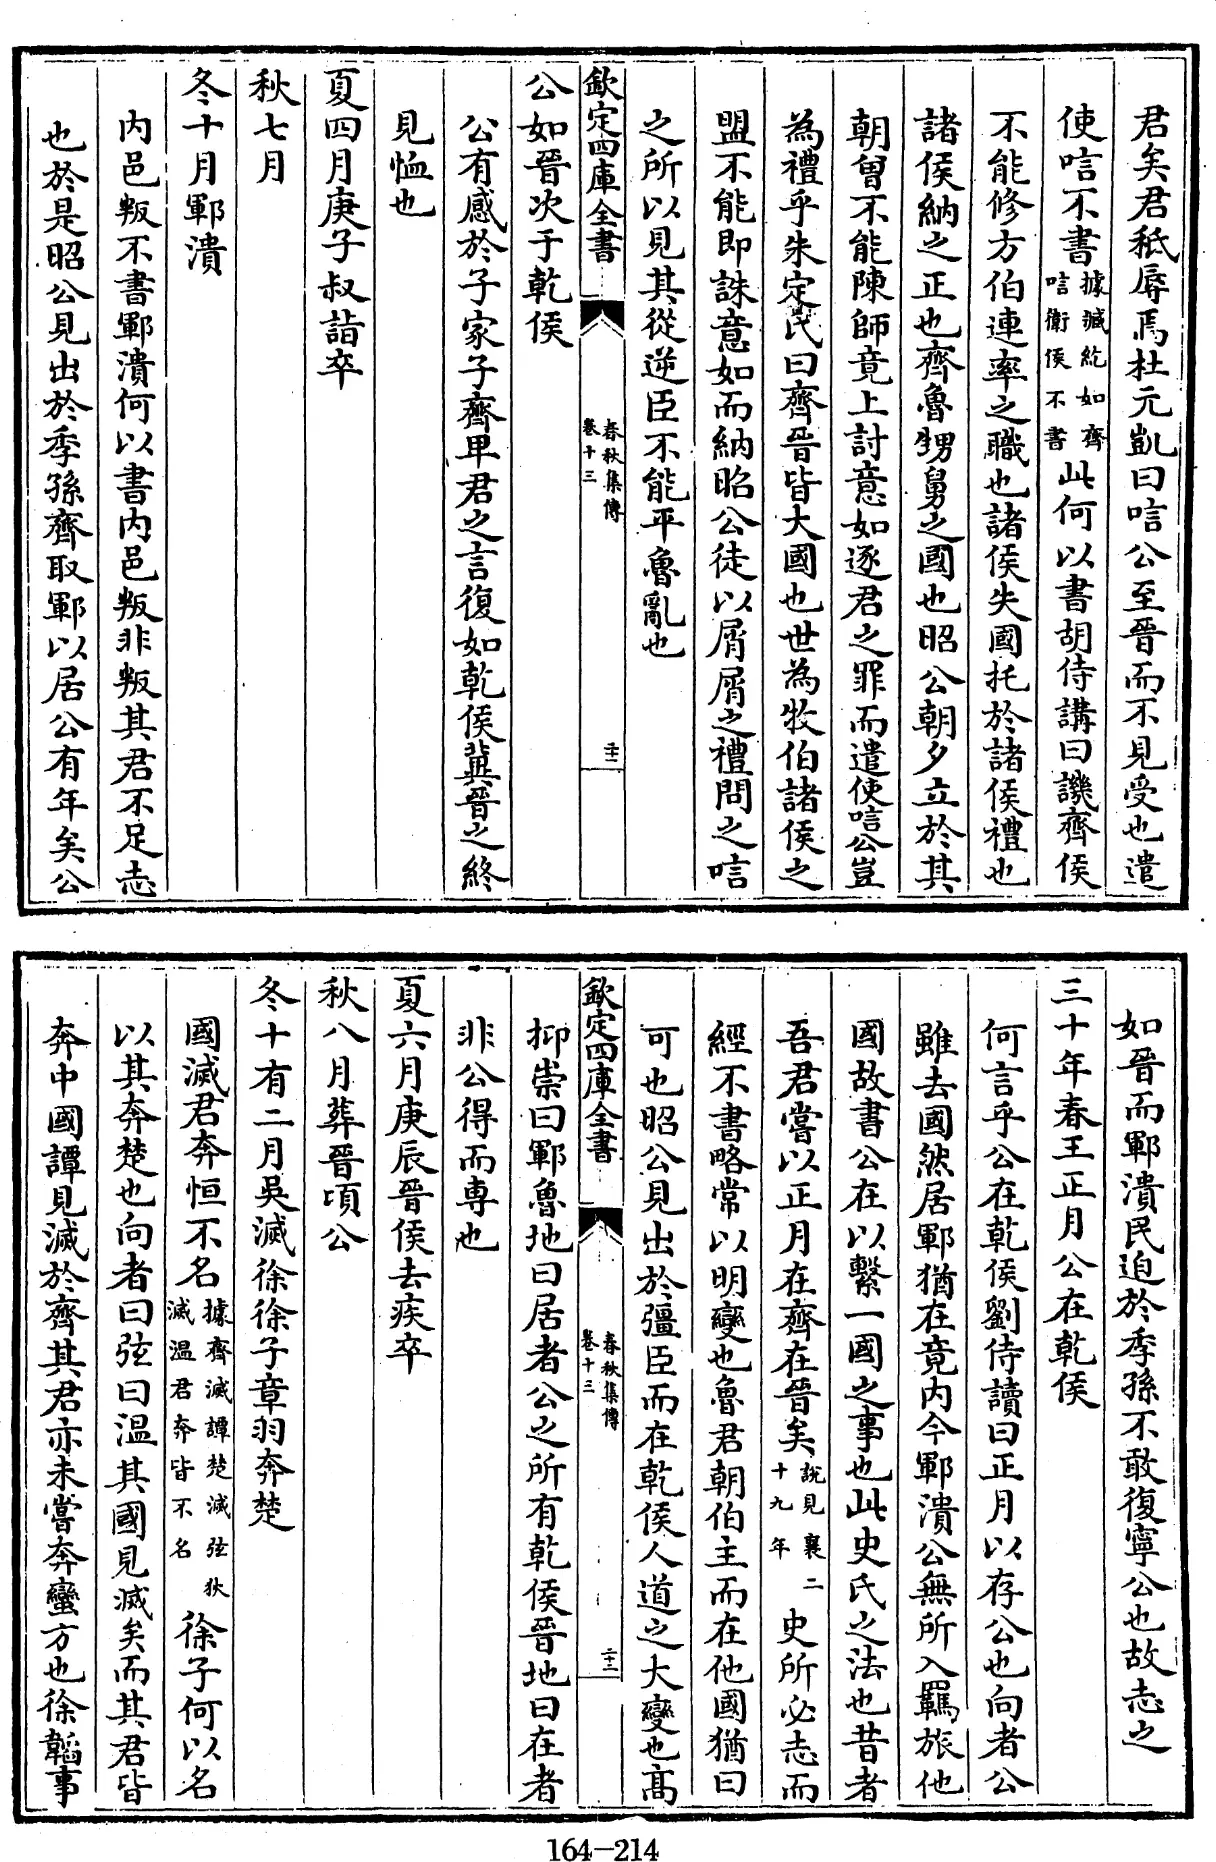 君矣君秖辱焉杜元凱曰唁公至晉而不見受也遣
使唁不書據臧紇如齊唁衛侯不書此何以書胡侍講曰譏齊侯
不能修方伯連率之職也諸侯失國托於諸侯禮也
諸侯納之正也齊魯甥舅之國也昭公朝夕立於其
朝曽不能陳師竟上討意如逐君之罪而遣使唁公豈
為禮乎朱定氏曰齊晉皆大國也世為牧伯諸侯之
盟不能即誅意如而納昭公徒以屑屑之禮問之唁
之所以見其從逆臣不能平魯亂也
欽定四庫全書
春秋集傳
卷十三
二十二
公如晉次于乾侯
公有感於子家子齊卑君之言復如乾侯冀晉之終
見恤也
夏四月庚子叔詣卒
秋七月
冬十月鄆潰
内邑叛不書鄆潰何以書内邑叛非叛其君不足志
也於是昭公見出於季孫齊取鄆以居公有年矣公
如晉而鄆潰民迫於季孫不敢復寧公也故志之
三十年春王正月公在乾侯
何言乎公在乾侯劉侍讀曰正月以存公也向者公
雖去國然居鄆猶在竟内今鄆潰公無所入羈旅他
國故書公在以繫一國之事也此史氏之法也昔者
吾君嘗以正月在齊在晉矣說見襄二十九年史所必志而
經不書略常以明變也魯君朝伯主而在他國猶曰
可也昭公見出於彊臣而在乾侯人道之大變也髙
欽定四庫全書
春秋集傳
卷十三
二十三
抑崇曰鄆魯地曰居者公之所有乾侯晉地曰在者
非公得而専也
夏六月庚辰晉侯去疾卒
秋八月葬晉頃公
冬十有二月吳滅徐徐子章羽奔楚
國滅君奔恒不名據齊滅譚楚滅弦狄滅温君奔皆不名徐子何以名
以其奔楚也向者曰弦曰温其國見滅矣而其君皆
奔中國譚見滅於齊其君亦未嘗奔蠻方也徐韜事
164-214